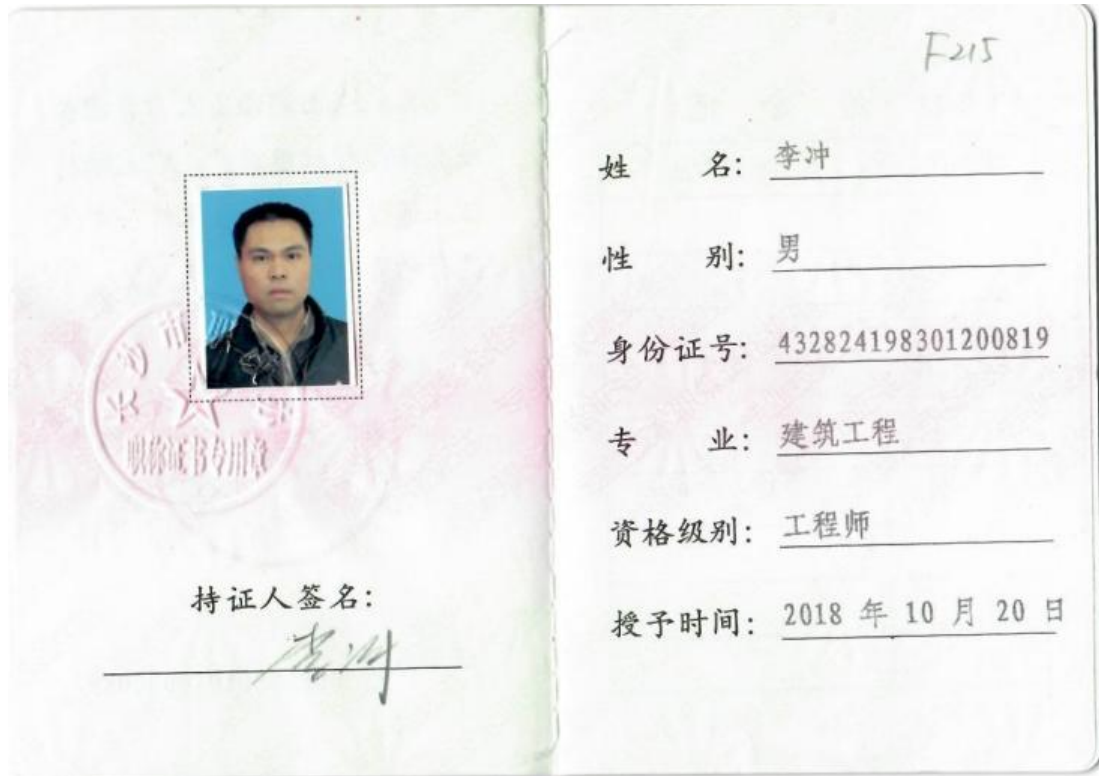 职称证书专用章
持证人签名:
李冲
F215
姓 名: 李冲
性 别: 男
身份证号: 432824198301200819
专 业: 建筑工程
资格级别: 工程师
授予时间: 2018 年 10 月 20 日